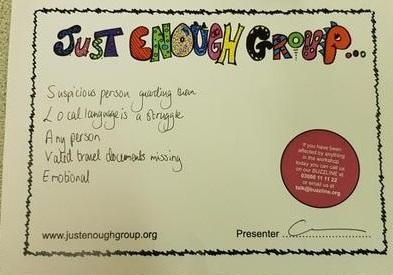 JUST ENOUGH GROUP...
Suspicious person guarding them
Local language is a struggle
Any person
Valid travel documents missing
Emotional
If you have been
affected by anything
in the workshop
today you can call us
on our BUZZLINE at
03000 11 11 22
or email us at
talk@buzzline.org
www.justenoughgroup.org
Presenter